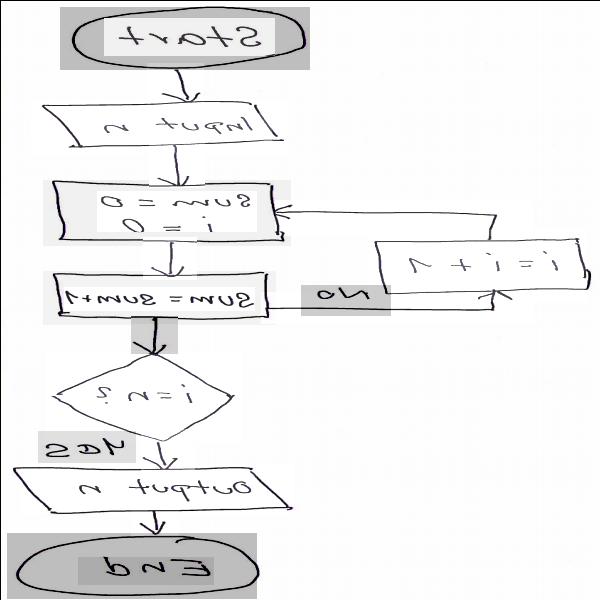 Start
Input n
sum = 0
i = 0
sum = sum+1
i = i + 1
No
i = n ?
Yes
Output n
End